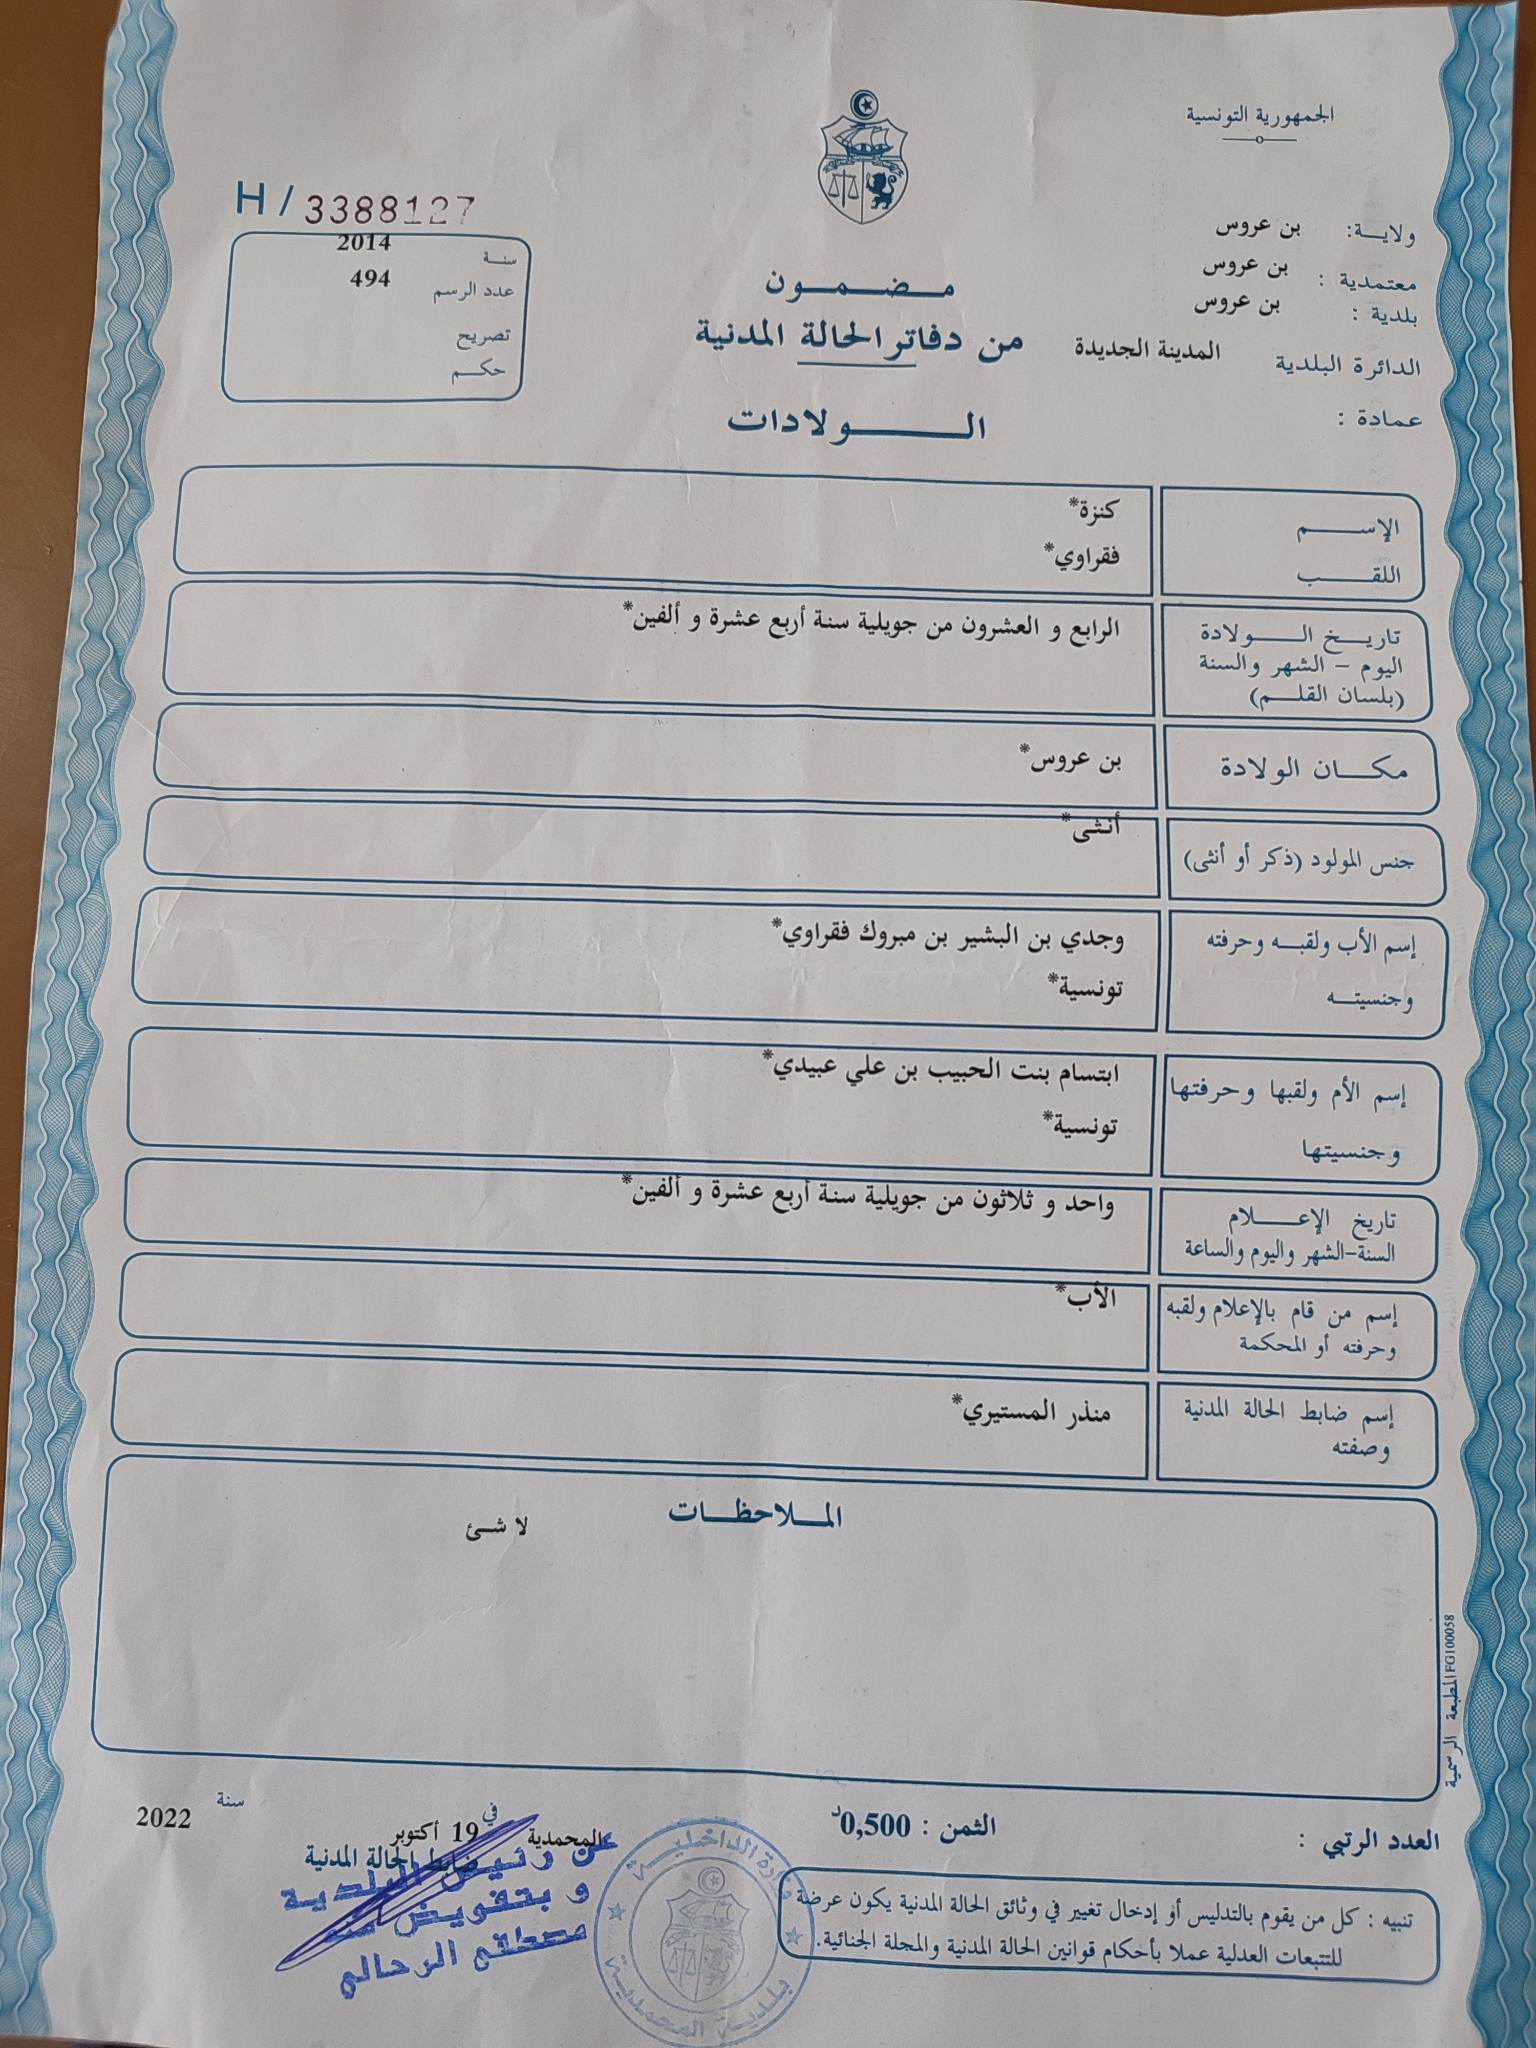 الجمهورية التونسية
ولايـة: بن عروس
معتمدية : بن عروس
بلدية : بن عروس
الدائرة البلدية المدينة الجديدة
عمادة :
مـضـمـون
من دفاتر الحالة المدنية
الـولادات
H / 3388127
سنة 2014
عدد الرسم 494
تصريح
حكم
الإسـم كنزة*
اللقـب فقراوي*
تاريـخ الـولادة الرابع و العشرون من جويلية سنة أربع عشرة و ألفين*
اليوم - الشهر والسنة
(بلسان القلـم)
مكـان الولادة بن عروس*
جنس المولود (ذكر أو أنثى) أنثى*
إسم الأب ولقبـه وحرفته وجدي بن البشير بن مبروك فقراوي*
وجنسيتـه تونسية*
إسم الأم ولقبها وحرفتها ابتسام بنت الحبيب بن علي عبيدي*
وجنسيتها تونسية*
تاريخ الإعـلام واحد و ثلاثون من جويلية سنة أربع عشرة و ألفين*
السنة-الشهر واليوم والساعة
إسم من قام بالإعلام ولقبه الأب*
وحرفته أو المحكمة
إسم ضابط الحالة المدنية منذر المستيري*
وصفته
المـلاحظـات
لا شئ
المطبعة الرسمية FG100058
العدد الرتبي :
الثمن : 0,500د
المحمدية في 19 أكتوبر سنة 2022
ضابط الحالة المدنية
عن رئيس البلدية
و بتفويض منه
مصطفى الرحالي
وزارة الداخليـة
بلديـة المحمديـة
تنبيه : كل من يقوم بالتدليس أو إدخال تغيير في وثائق الحالة المدنية يكون عرضة
للتتبعات العدلية عملا بأحكام قوانين الحالة المدنية والمجلة الجنائية.